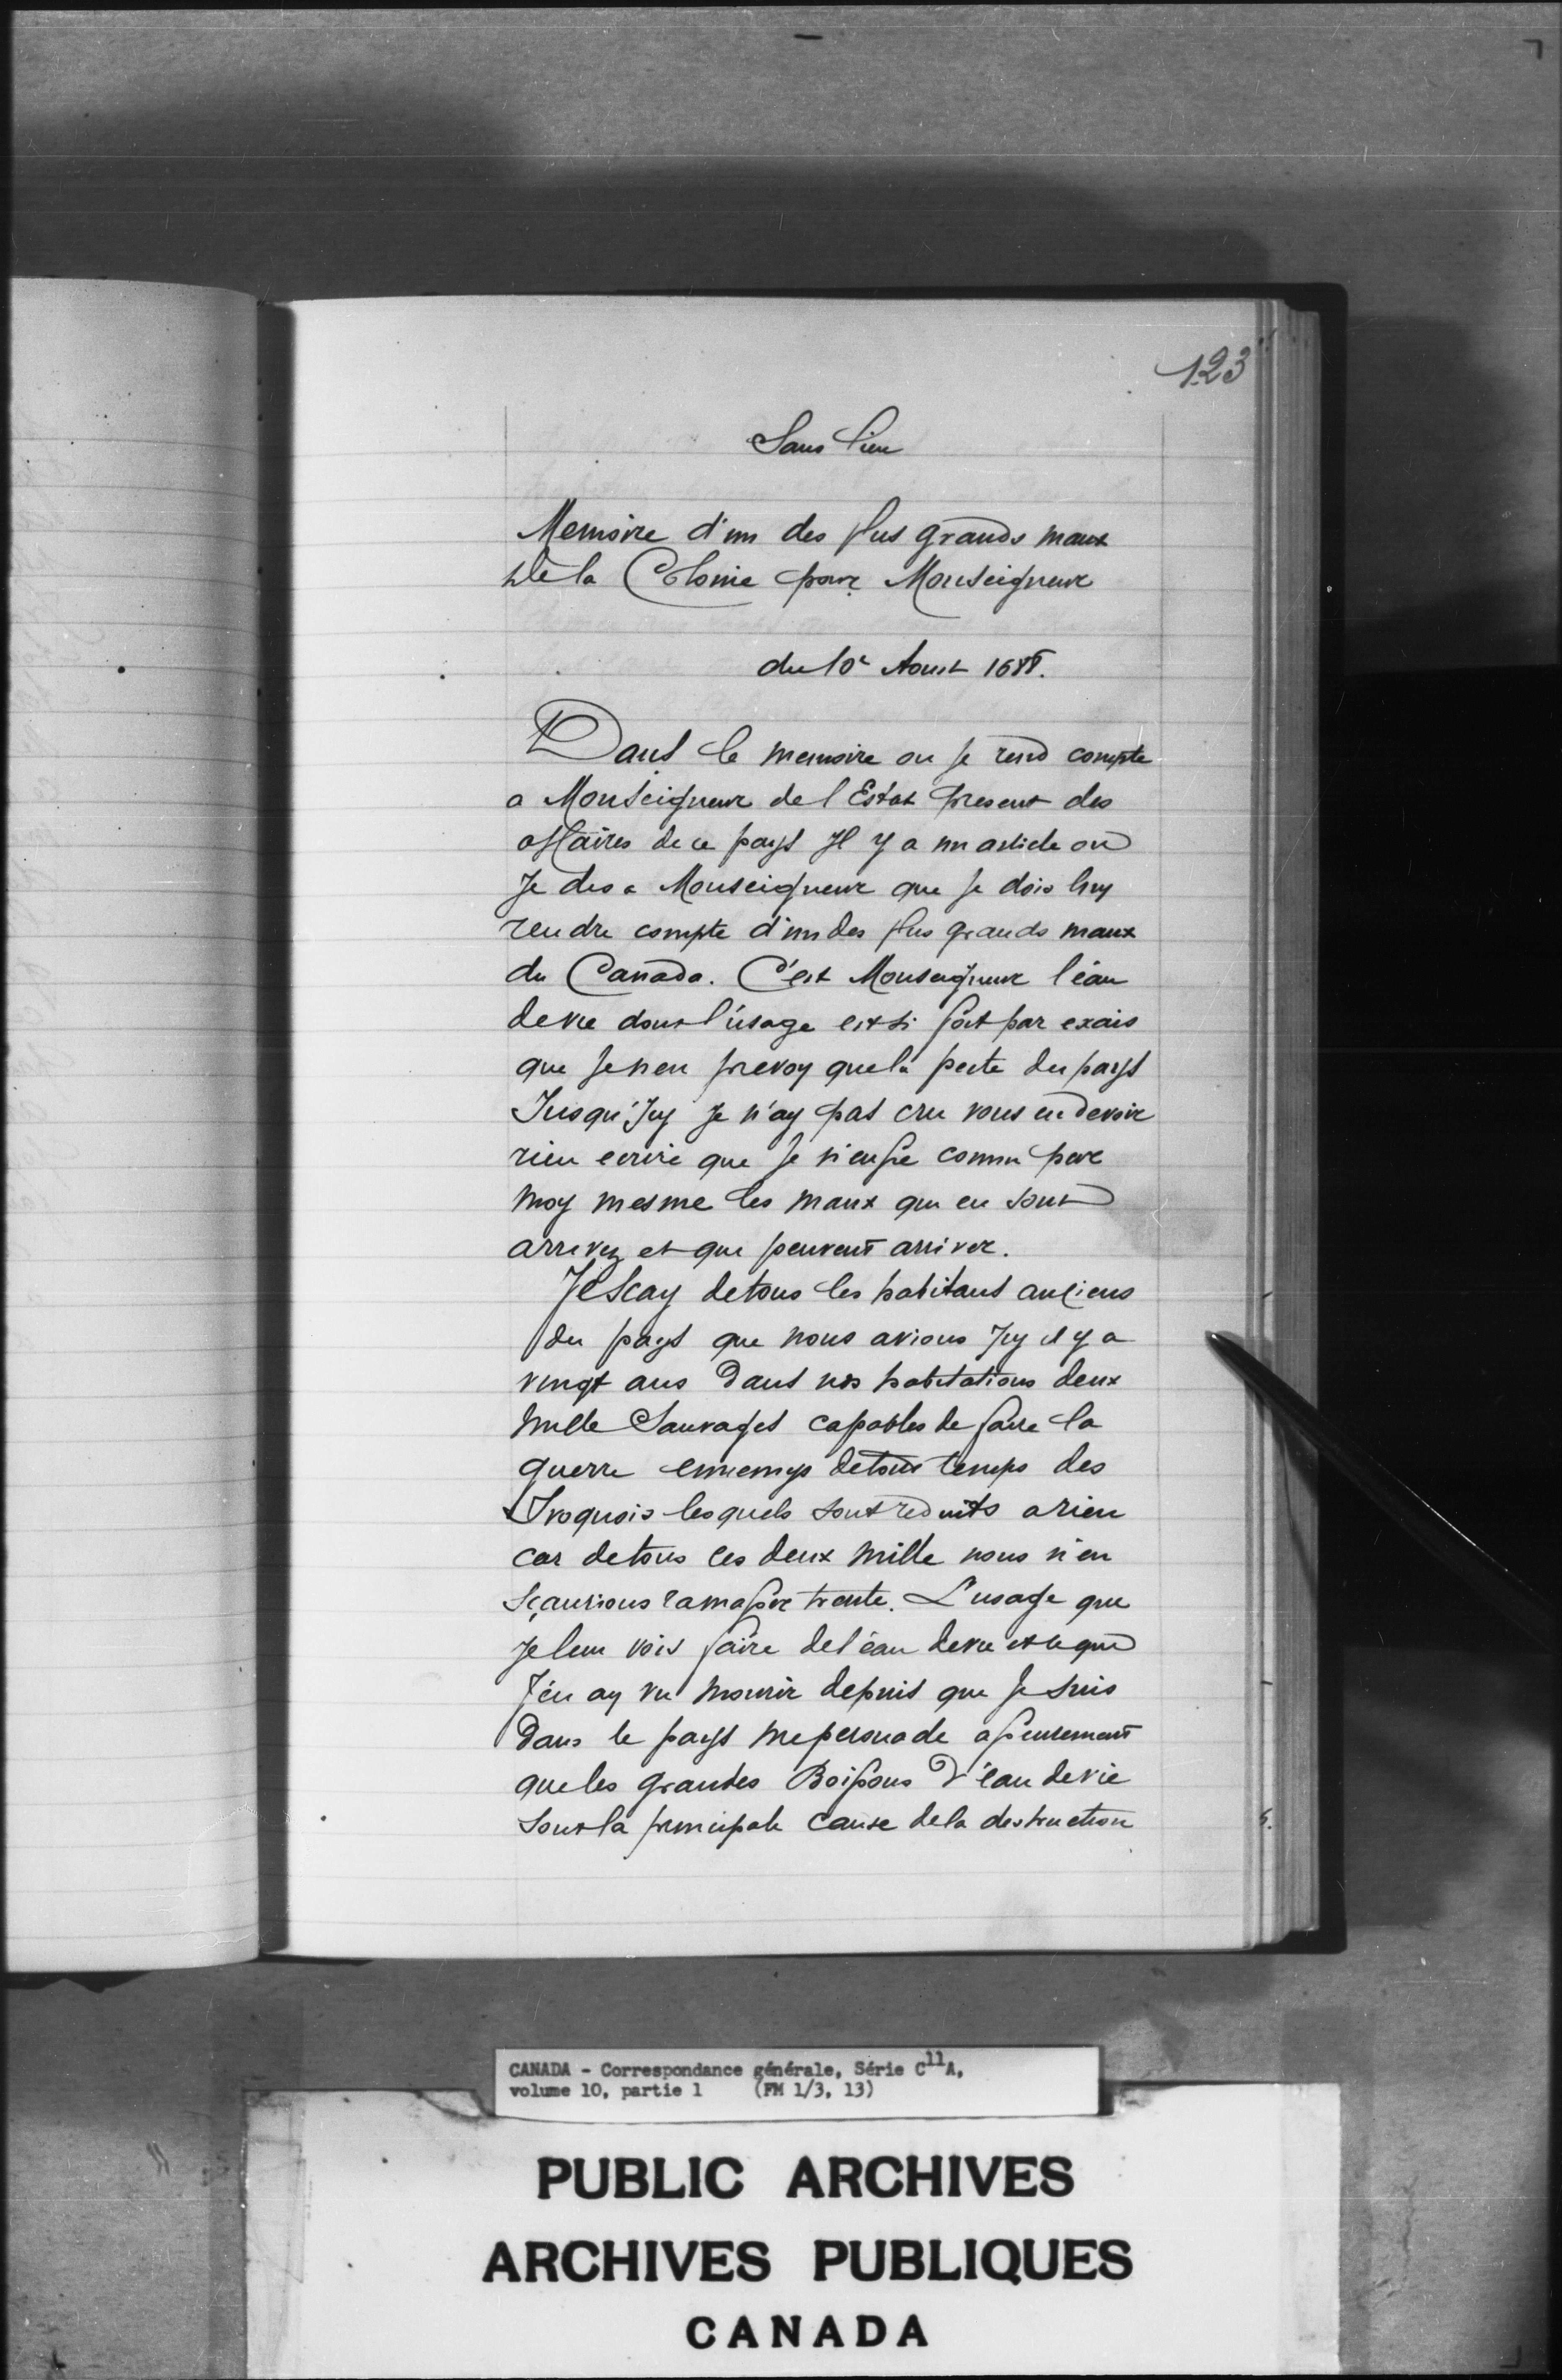 123
Sans lieu
Memoire d'un des plus grands maux
de la Colonie pour Monseigneur
du 10e Aoust 1688.
Dans le memoire ou je rend compte
a Monseigneur de l Estat present des
affaires de ce pays Jl y a un article ou
Je dis a Monseigneur que je dois luy
rendre compte d'un des plus grands maux
du Canada. C'est Monseigneur l'éau
de vie dont l'usage est si fort par exais
que je n en prevoy que la perte du pays
Jusqu'Jcy Je n'ay pas cru vous en devoir
rien ecrire que Je n'eusse connu par
moy mesme les maux qui en sont
arrivez et qui peuvent arriver.
Je scay de tous les habitans anciens
du pays que nous avions Jcy il y a
vingt ans dans nos habitations deux
mille Sauvages capables de faire la
guerre ennemys de tous temps des
Iroquois lesquels sont reduits a rien
car de tous ces deux mille nous n'en
sçaurions ramasser trente. L'usage que
Je leur vois faire de l'éau de vie et ce que
J'en ay vu mourir depuis que Je suis
dans le pays me persuade assurement
que les grandes Boissons d'éau de vie
sont la principale cause de la destruction
CANADA - Correspondance générale, Série C11A,
volume 10, partie 1 (FM 1/3, 13)
PUBLIC ARCHIVES
ARCHIVES PUBLIQUES
CANADA